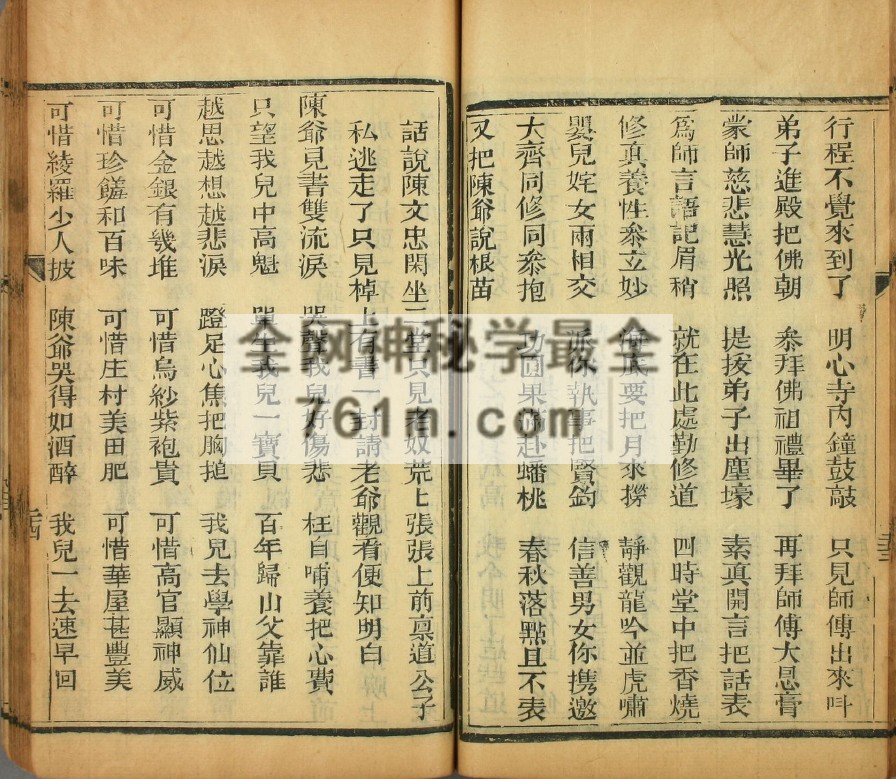 行程不覺來到了　明心寺內鐘鼓敲　只見師傅出來呌
弟子進殿把佛朝　叅拜佛祖禮畢了　再拜師傅大恩膏
蒙師慈悲慧光照　提拔弟子出塵壕　素真開言把話表
爲師言語記眉稍　就在此處勤修道　四時堂中把香燒
修真養性叅立妙　海底要把月來撈　靜觀龍吟並虎嘯
嬰兒姹女兩相交　派你執事把賢鈞　信善男女你携邀
大齊同修同叅抱　功圓果滿赴蟠桃　春秋落㸃且不表
又把陳爺說根苗
話說陳文忠閑坐二堂只見老奴荒上張張上前禀道公子
私逃走了只見棹上有書一封請老爺觀看便知明白
陳爺見書雙流淚　哭聲我兒好傷悲　枉自哺養把心費
只望我兒中高魁　單生我兒一寶貝　百年歸山父靠誰
越思越想越悲淚　蹬足心焦把胸搥　我兒去學神仙位
可惜金銀有幾堆　可惜烏紗紫袍貴　可惜高官顯神威
可惜珍饈和百味　可惜庄村美田肥　可惜華屋甚豐美
可惜綾羅少人披　陳爺哭得如酒醉　我兒一去速早回
全网神秘学最全
761m.com